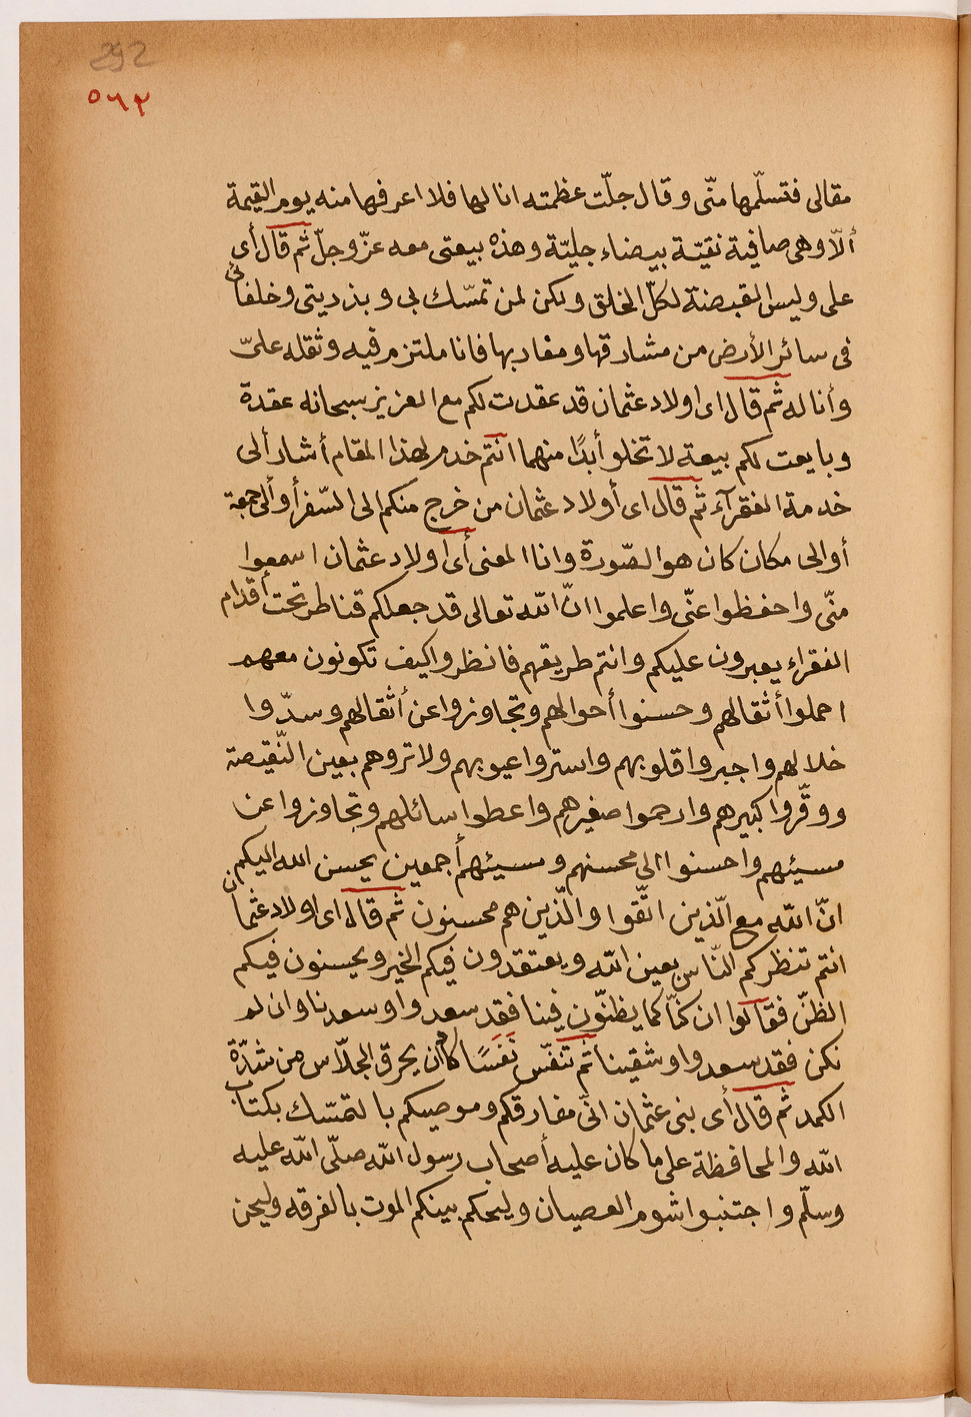 292
٥٦٢
مقالى فتسلّمها منّى وقال جلّت عظمته انا لها فلا اعرفها منه يوم القيمة
ألّا وهى صافية نقيّة بيضاء جليّة وهذه بيعتى معه عزّ وجلّ ثم قال أى
على وليس القبضة لكلّ الخلق ولكن لمن تمسّك بى وبذريتى وخلفائى
فى سائر الأرض من مشارقها ومغاربها فانا ملتزم فيه وثقله علىّ
وأنا له ثم قال اى اولاد عثمان قد عقدت لكم مع العزيز سبحانه عقدة
وبايعت لكم بيعة لا تخلو أبدًا منهما انتم خدم لهذا المقام أشار ألى
خدمة الفقرآء ثم قال اى أولاد عثمان من خرج منكم الى السّفر أو ألى جمعة
أو الى مكان كان هو الصّورة وانا المعنى أى اولاد عثمان اسمعوا
منّى واحفظوا عنّى واعلموا انّ الله تعالى قد جعلكم قناطر تحت أقدام
الفقراء يعبرون عليكم وانتم طريقهم فانظروا كيف تكونون معهم
احملوا أثقالهم وحسنوا أحوالهم وتجاوزوا عن أثقالهم وسدّوا
خلالهم واجبروا قلوبهم واستروا عيوبهم ولا تروهم بعين النّقيصة
ووقّروا كبيرهم وارحموا صغيرهم واعطوا سائلهم وتجاوزوا عن
مسيئهم واحسنوا الى محسنهم ومسيئهم أجمعين يحسن الله اليكم
انّ الله مع الّذين اتّقوا والّذين هم محسنون ثم قال اى اولاد عثمان
انتم تنظركم النّاس بعين الله ويعتقدون فيكم الخير ويحسنون فيكم
الظنّ فقالوا ان كنّا كما يظنّون فينا فقد سعدوا وسعدنا وان لم
نكن فقد سعدوا وشقينا ثم تنفّس نَفَسًا كاد أن يحرق الجلّاس من شدّة
الكمد ثم قال أى بنى عثمان انّى مفارقكم وموصيكم بالتمسّك بكتاب
الله والمحافظة على ما كان عليه أصحاب رسول الله صلّى الله عليه
وسلّم واجتنبوا شوم العصيان وليحكم بينكم الموت بالفرقه وليحن